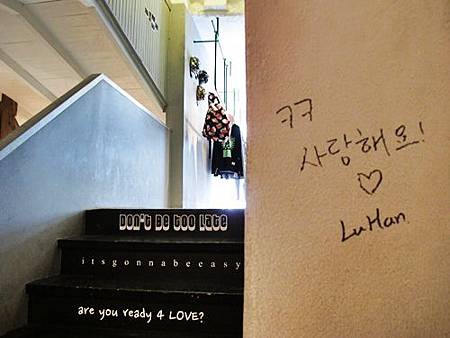 DON'T BE TOO LATE
itsgonnabeeasy
are you ready 4 LOVE?
ㅋㅋ
사랑해요!
♡
LuHan